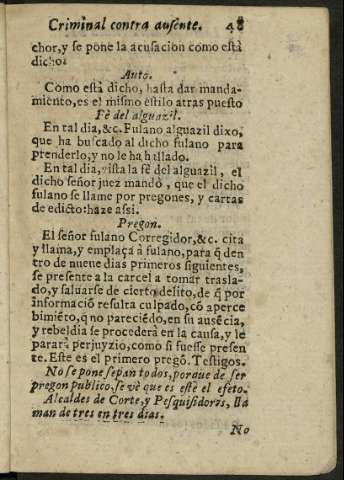 Criminal contra ausente. 48
chor, y se pone la acusacion como està
dicho:
Auto.
Como està dicho, hasta dar manda-
miento, es el mismo estilo atras puesto
Fè del alguazil.
En tal dia, &c. Fulano alguazil dixo,
que ha buscado al dicho fulano para
prenderlo, y no le ha hallado.
En tal dia, vista la fè del alguazil, el
dicho señor juez mandò, que el dicho
fulano se llame por pregones, y cartas
de edicto: haze assi.
Pregon.
El señor fulano Corregidor, &c. cita
y llama, y emplaça à fulano, para q̃ den
tro de nueue dias primeros siguientes,
se presente a la carcel a tomar trasla-
do, y saluarse de cierto delito, de q̃ por
informació resulta culpado, có aperce
bimiéto, q̃ no pareciédo, en su ausécia,
y rebeldia se procederà en la causa, y le
pararà perjuyzio, como si fuesse presen
te. Este es el primero pregó. Testigos.
No se pone sepan todos, porque de ser
pregon publico, se vè que es este el efeto.
Alcaldes de Corte, y Pesquisidores, lla
man de tres en tres dias.
No